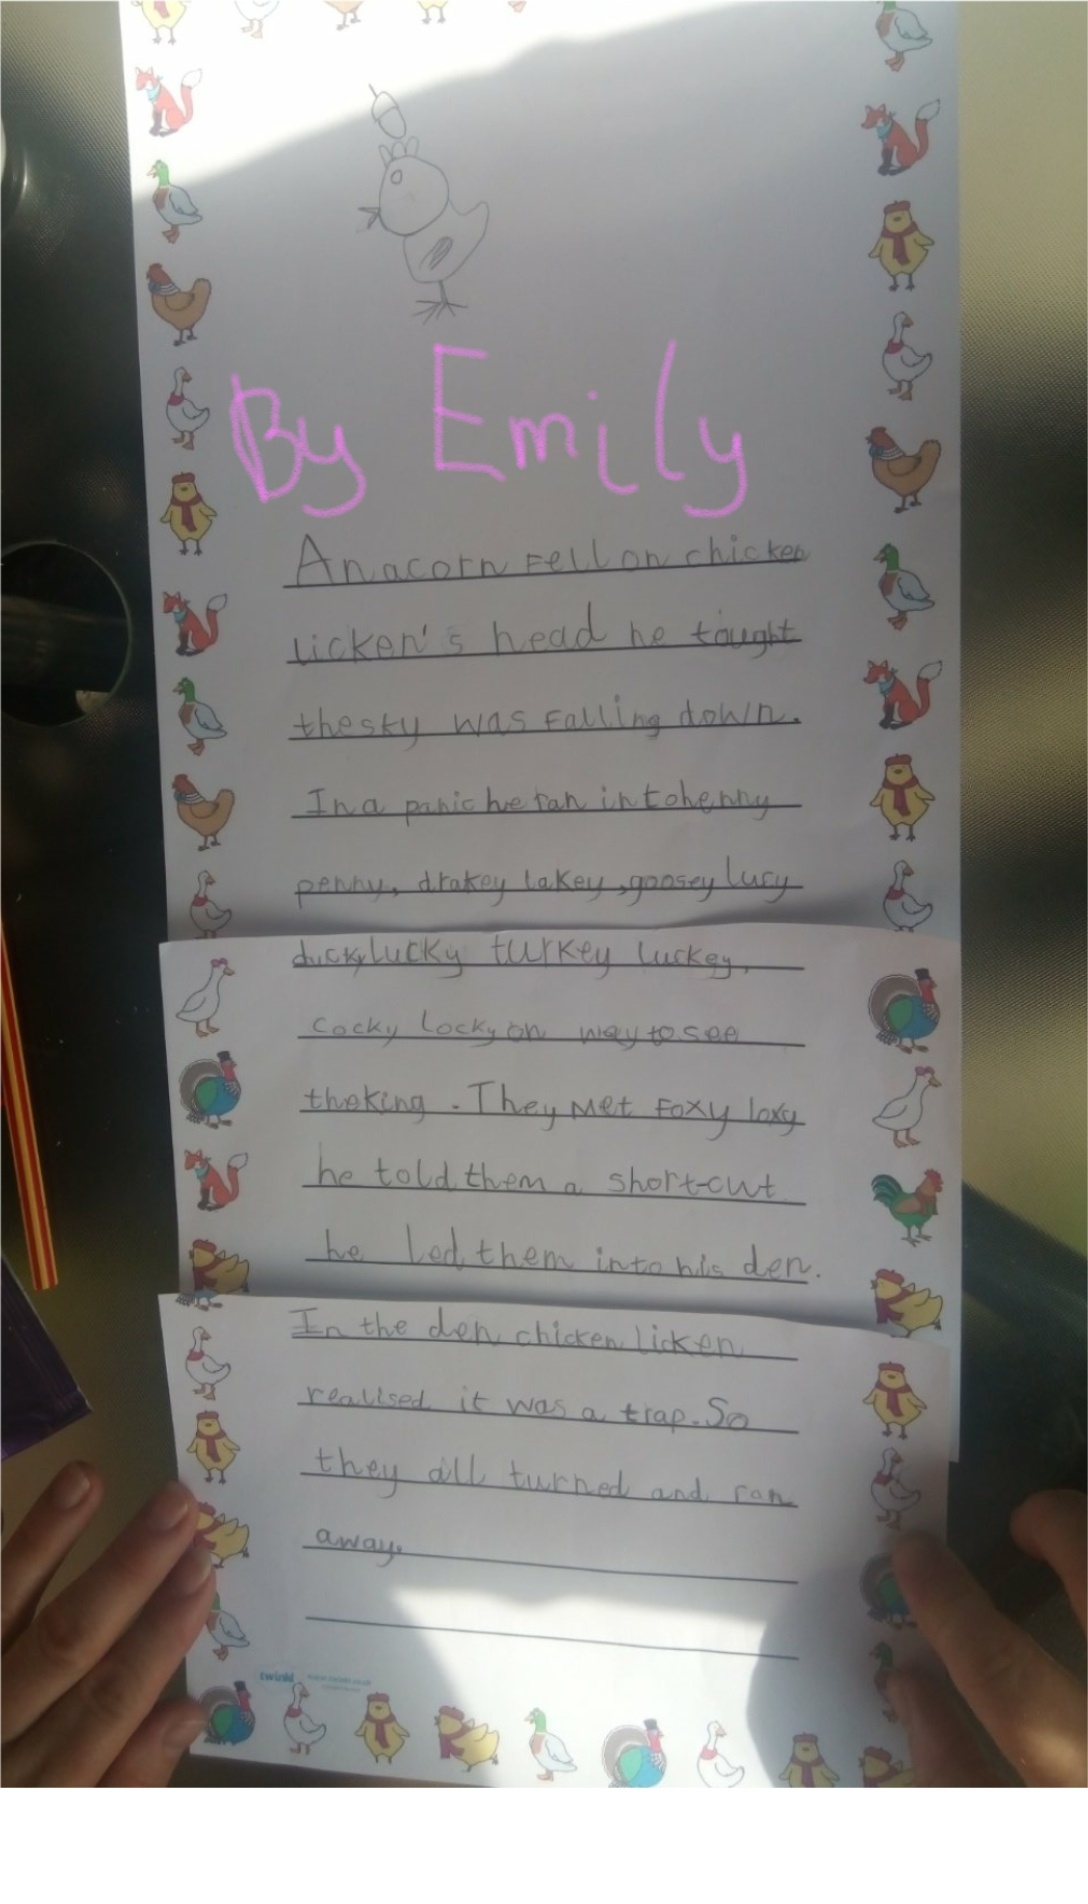 By Emily
An acorn fell on chicken
licken's head he tought
the sky was falling down.
In a panic he ran into henny
penny, drakey lakey, goosey lucy
ducky lucky turkey luckey,
cocky locky on way to see
the king. They met Foxy loxy
he told them a short-cut
he led them into his den.
In the den chicken licken
realised it was a trap. So
they all turned and ran
away.
twinkl